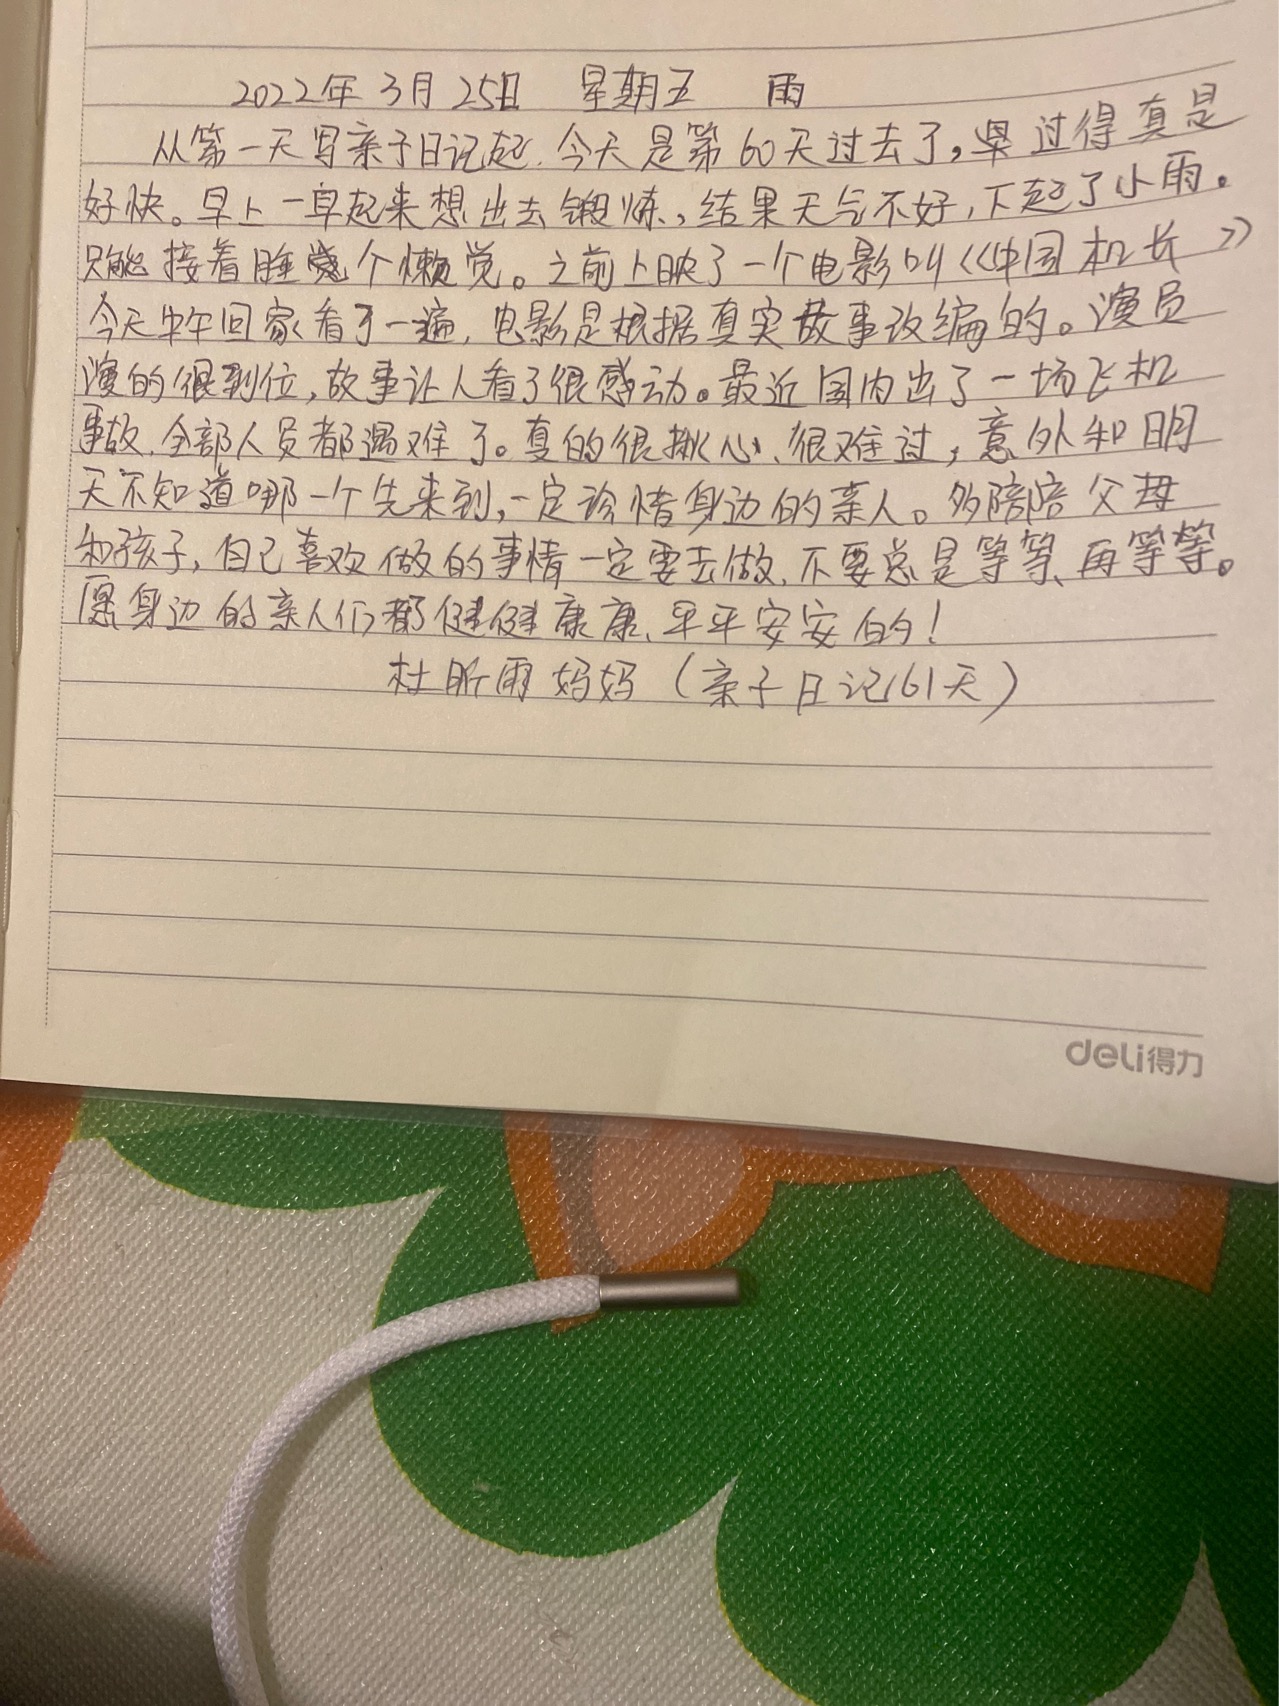 2022年3月25日 星期五 雨
从第一天写亲子日记起.今天是第60天过去了,过得真是
好快。早上一早起来想出去锻炼,结果天气不好,下起了小雨。
只能接着睡个懒觉。之前上映了一个电影叫《中国机长》
今天中午回家看了一遍,电影是根据真实故事改编的。演员
演的很到位,故事让人看了很感动。最近国内出了一场飞机
事故.全部人员都遇难了。真的很揪心、很难过,意外和明
天不知道哪一个先来到,一定珍惜身边的亲人。多陪陪父母
和孩子,自己喜欢做的事情一定要去做.不要总是等等、再等等。
愿身边的亲人们都健健康康、平平安安的!
杜昕雨妈妈(亲子日记61天)
deli得力